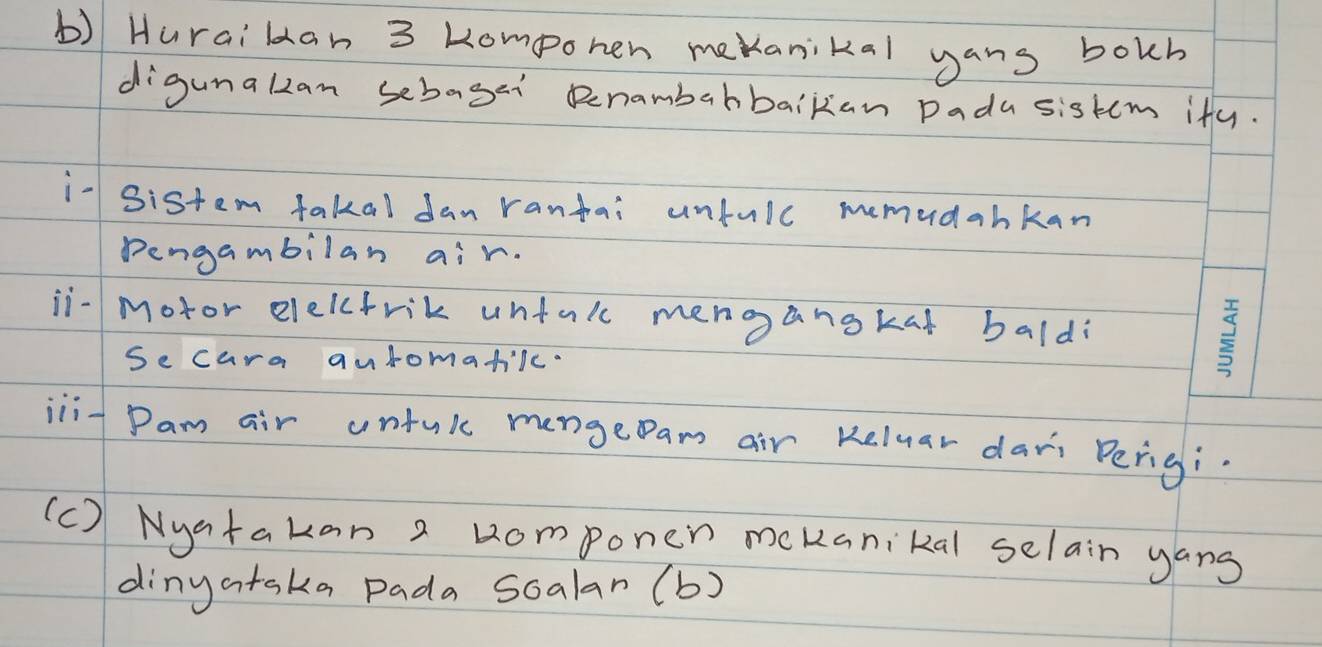 b) Huraikan 3 komponen mekanikal yang boleh
digunakan sebagai Penambahbaikan pada sistem itu.
i- Sistem takal dan rantai untuk memudahkan
Pengambilan air.
ii- Motor elektrik untuk mengangkat baldi
Secara automatik.
iii- Pam air untuk mengepam air keluar dari Perigi.
(c) Nyatakan 2 komponen mekanikal selain yang
dinyataka pada soalan (b)
JUMLAH